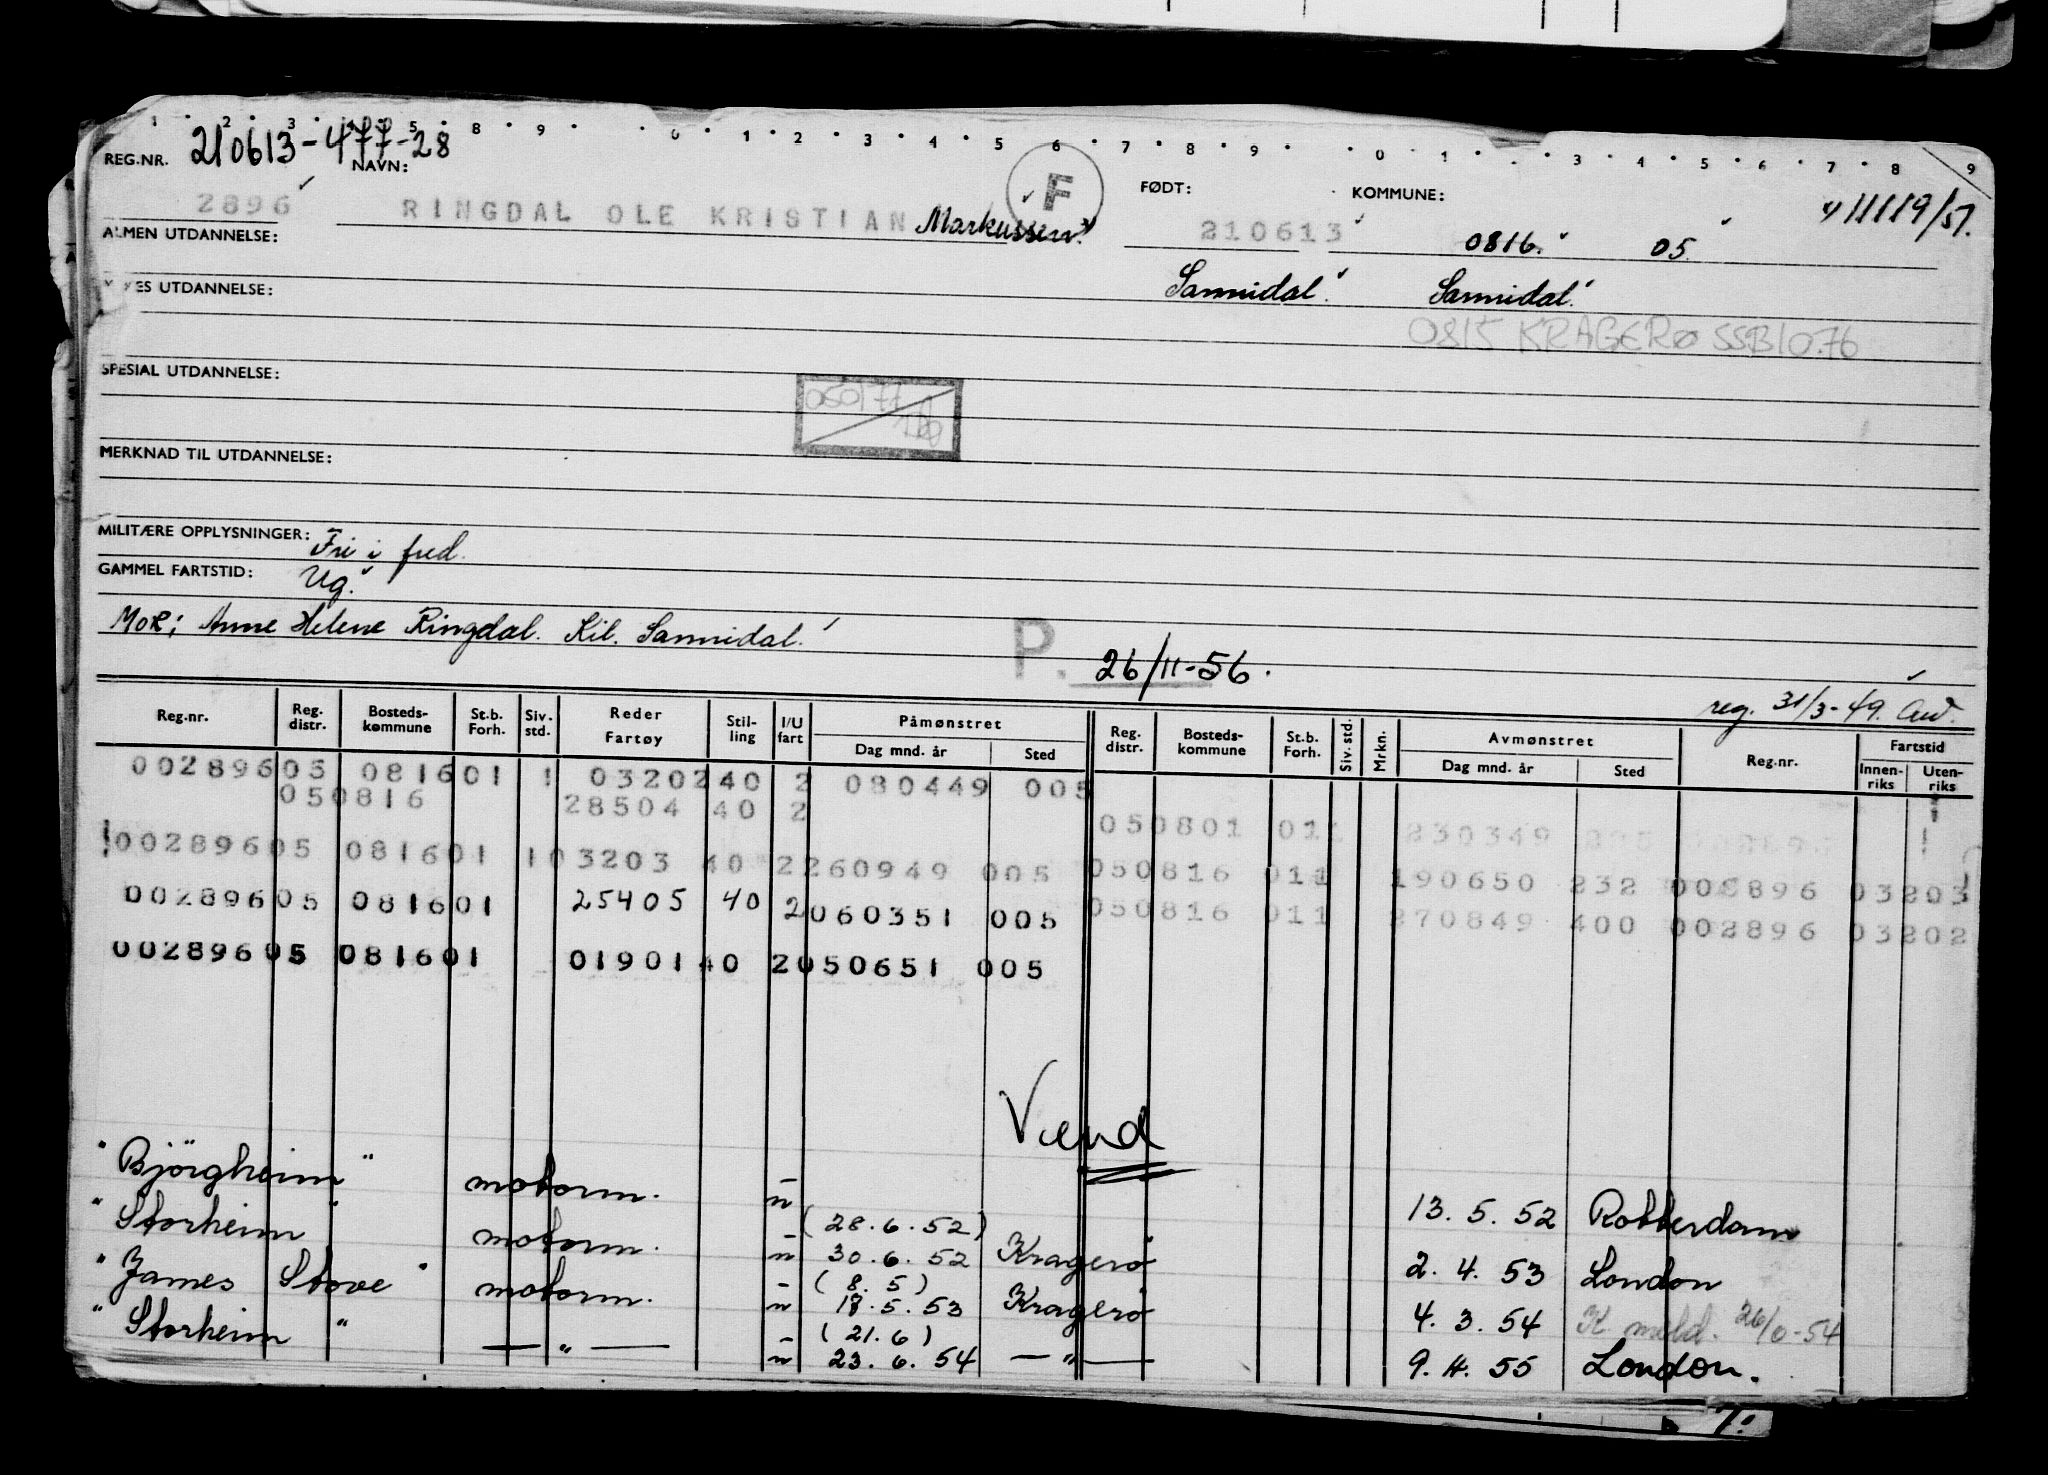 1 2 3 4 5 8 9 0 1 2 3 4 5 6 7 8 9 0 1 3 4 5 6 7 8 9
REG.NR. 210613-477-28 NAVN: F FØDT: KOMMUNE: 11119/57.
2896 RINGDAL OLE KRISTIAN Markussen 210613 0816. 05.
ALMEN UTDANNELSE:
Sannidal. Sannidal.
UTDANNELSE:
0815 KRAGERØ SSB 10.76
SPESIAL UTDANNELSE:
050177
MERKNAD TIL UTDANNELSE:
MILITÆRE OPPLYSNINGER: Fri i fred.
GAMMEL FARTSTID: Ug.
Mor: Anne Helene Ringdal. Kil. Sannidal.
P. 26/11-56.
reg. 31/3-49.
Reg.nr. Reg. distr. Bosteds-kommune St.b. Forh. Siv. std. Reder Fartøy Stil-ling I/U fart Påmønstret Dag mnd. år Sted Reg. distr. Bosteds-kommune St.b. Forh. Siv. std. Mrkn. Avmønstret Dag mnd. år Sted Reg.nr. Fartstid Innen-riks Uten-riks
002896 05 0816 01 1 03202 40 2 080449 005
05 0816 28504 40 2
05 0801 011 230349
002896 05 0816 01 1 03203 40 2 260949 005 05 0816 011 190650 232 002896 03203
002896 05 0816 01 25405 40 2 060351 005 05 0816 011 270849 400 002896 03202
002896 05 0816 01 01901 40 2 050651 005
Vend
"Bjørgheim" motorm. u 13.5.52 Rotterdam
(28.6.52)
"Storheim" motorm. u 30.6.52 Kragerø 2.4.53 London
(8.5)
"James Stove" motorm. u 18.5.53 Kragerø 4.3.54 K. meld.
(21.6)
"Storheim" — " — u 23.6.54 — " — 9.4.55 London.
7.